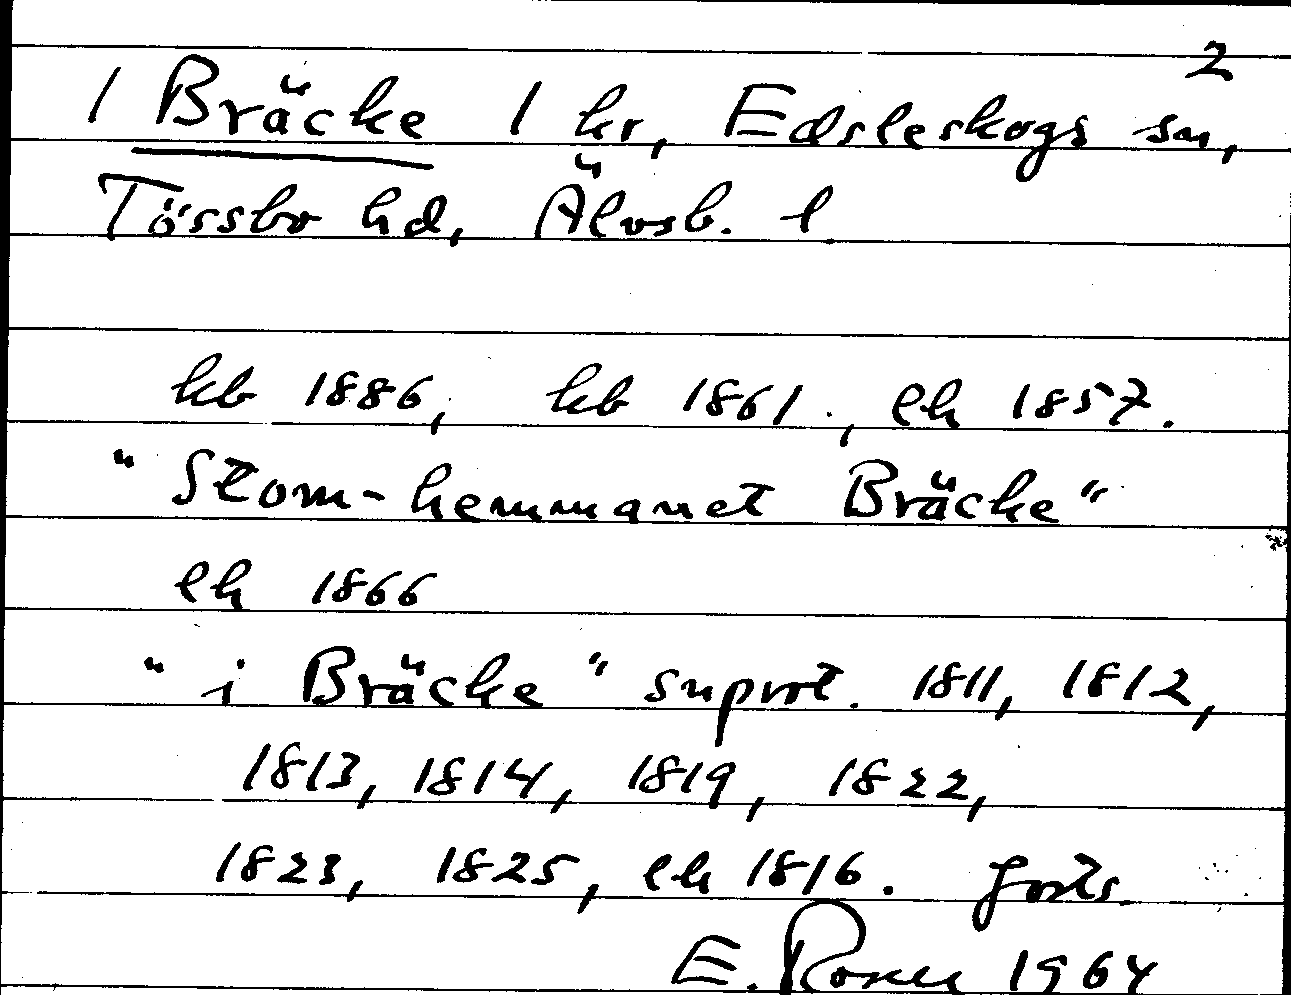 2
1 Bräcke 1 kr, Edsleskogs sn,
Tössbo hd, Älvsb. l.
kb 1886, kb 1861, eh 1857.
"Stom-hemmanet Bräcke"
eh 1866
"i Bräcke" snprot. 1811, 1812,
1813, 1814, 1819, 1822,
1823, 1825, eh 1816. forts.
E. Rosen 1964